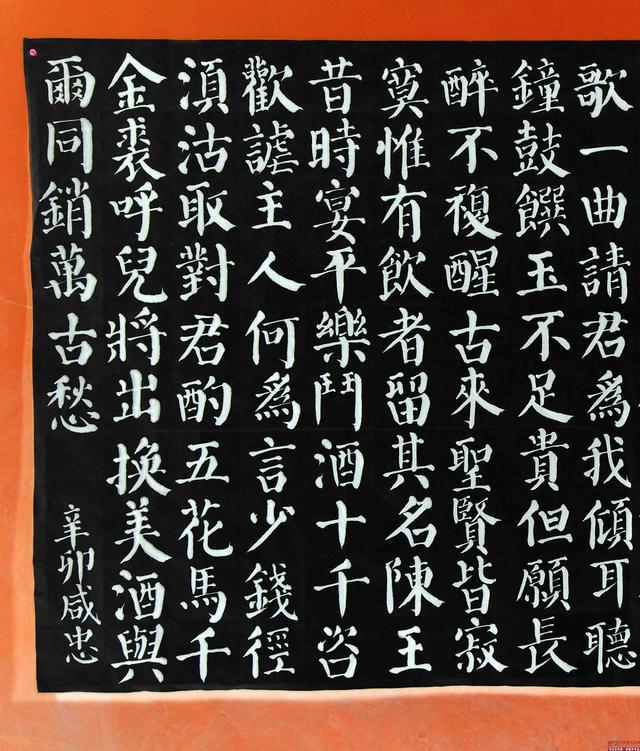 歌一曲請君為我傾耳聽
鐘鼓饌玉不足貴但願長
醉不複醒古來聖賢皆寂
寞惟有飲者留其名陳王
昔時宴平樂鬥酒十千咨
歡謔主人何為言少錢徑
湏沽取對君酌五花馬千
金裘呼兒將出換美酒與
爾同銷萬古愁
辛卯咸忠